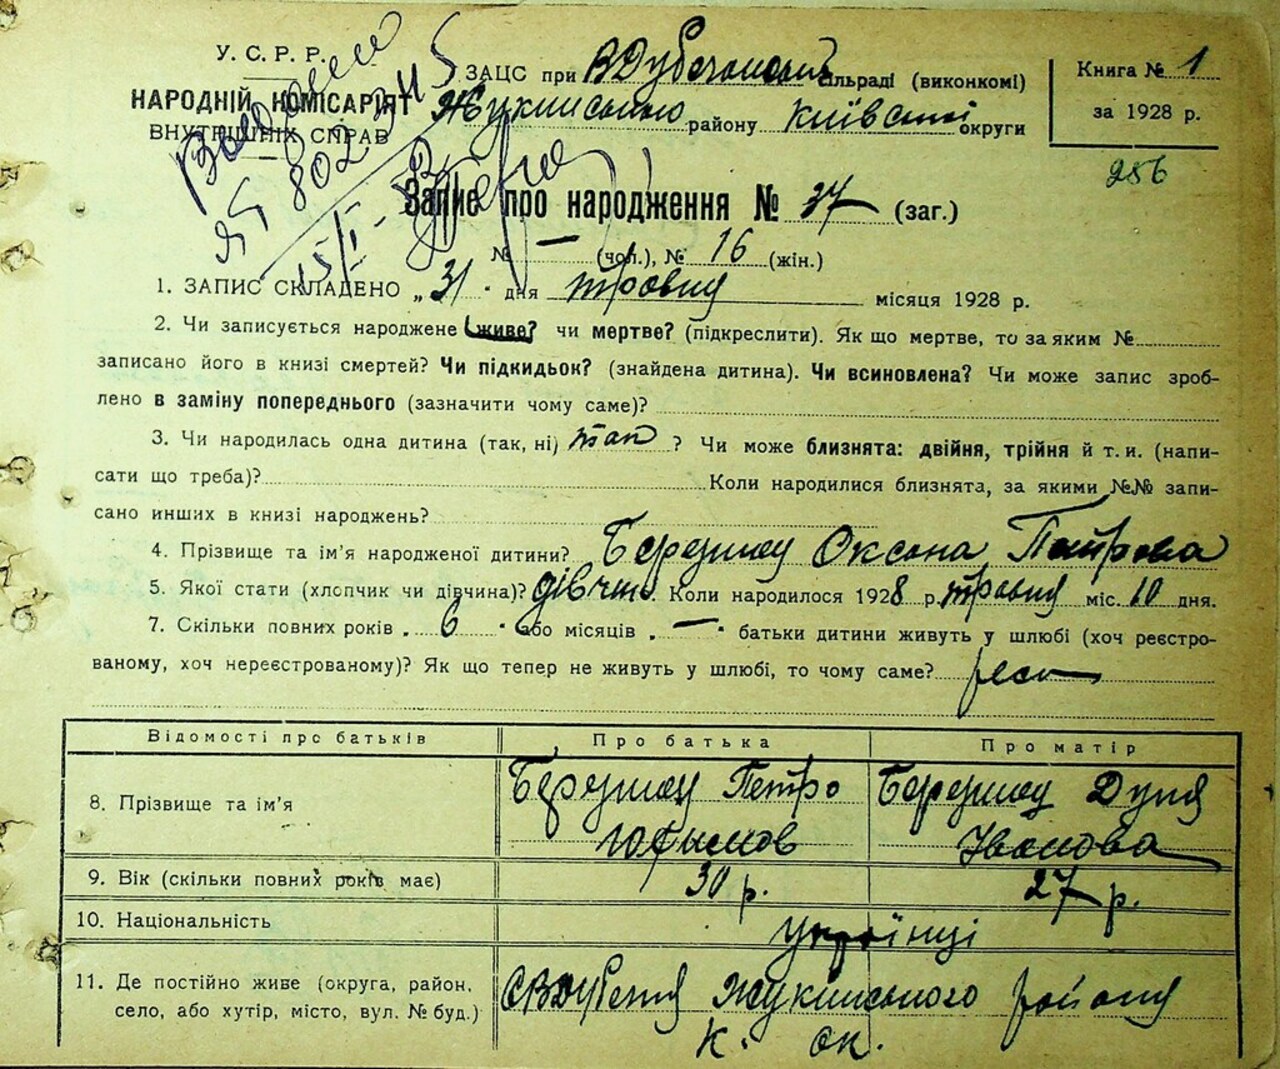 У. С. Р. Р.
НАРОДНІЙ КОМІСАРІЯТ
ВНУТРІШНІХ СПРАВ
ЗАЦС при ВДубечанській сільраді (виконкомі)
Жукинського району Київської округи
Книга № 1
за 1928 р.
256
ЯБ 802345
Запис про народження № 37 (заг.)
№ — (чол.), № 16 (жін.)
1. ЗАПИС СКЛАДЕНО „ 31 " дня травня місяця 1928 р.
2. Чи записується народжене живе? чи мертве? (підкреслити). Як що мертве, то за яким №
записано його в книзі смертей? Чи підкидьок? (знайдена дитина). Чи всиновлена? Чи може запис зроб-
лено в заміну попереднього (зазначити чому саме)?
3. Чи народилась одна дитина (так, ні) так ? Чи може близнята: двійня, трійня й т. и. (напи-
сати що треба)? Коли народилися близнята, за якими №№ запи-
сано инших в книзі народжень?
4. Прізвище та ім'я народженої дитини? Оксана Петрова
5. Якої стати (хлопчик чи дівчина)? дівчин. Коли народилося 1928 р. травня міс. 10 дня.
7. Скільки повних років „ 6 " або місяців „ — " батьки дитини живуть у шлюбі (хоч реєстро-
ваному, хоч нереєстрованому)? Як що тепер не живуть у шлюбі, то чому саме?
Відомості про батьків Про батька Про матір
8. Прізвище та ім'я Петро
Іванова
9. Вік (скільки повних років має) 30 р. 27 р.
10. Національність Українці
11. Де постійно живе (округа, район, СВДубечня Жукинського району
село, або хутір, місто, вул. № буд.) К. ок.